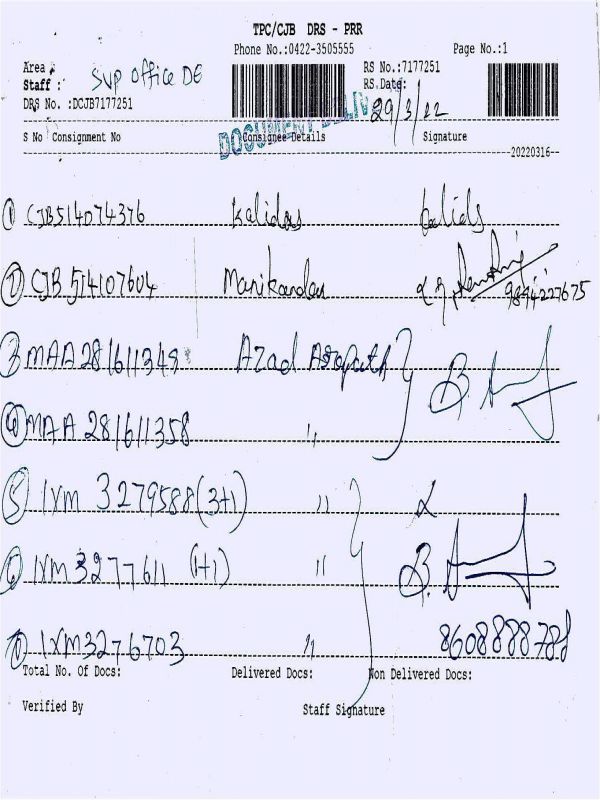 TPC/CJB DRS - PRR
Phone No.:0422-3505555 Page No.:1
Area : RS No.:7177251
Staff : SVP Office DE RS Date: 29/3/22
DRS No. :DCJB7177251
DOCUMENT
S No Consignment No Consignee Details Signature
20220316
1 CJB514074376 Kalidas Kalids
2 CJB 514107604 Manikandan 9894227675
3 MAA 281611349 Azad Asopath
4 MAA 281611358 "
5 IXM 3279588(3+1) "
6 IXM 3277611 (1+1) " B.
7 IXM3276703 " 8608888788
Total No. Of Docs: Delivered Docs: Non Delivered Docs:
Verified By Staff Signature